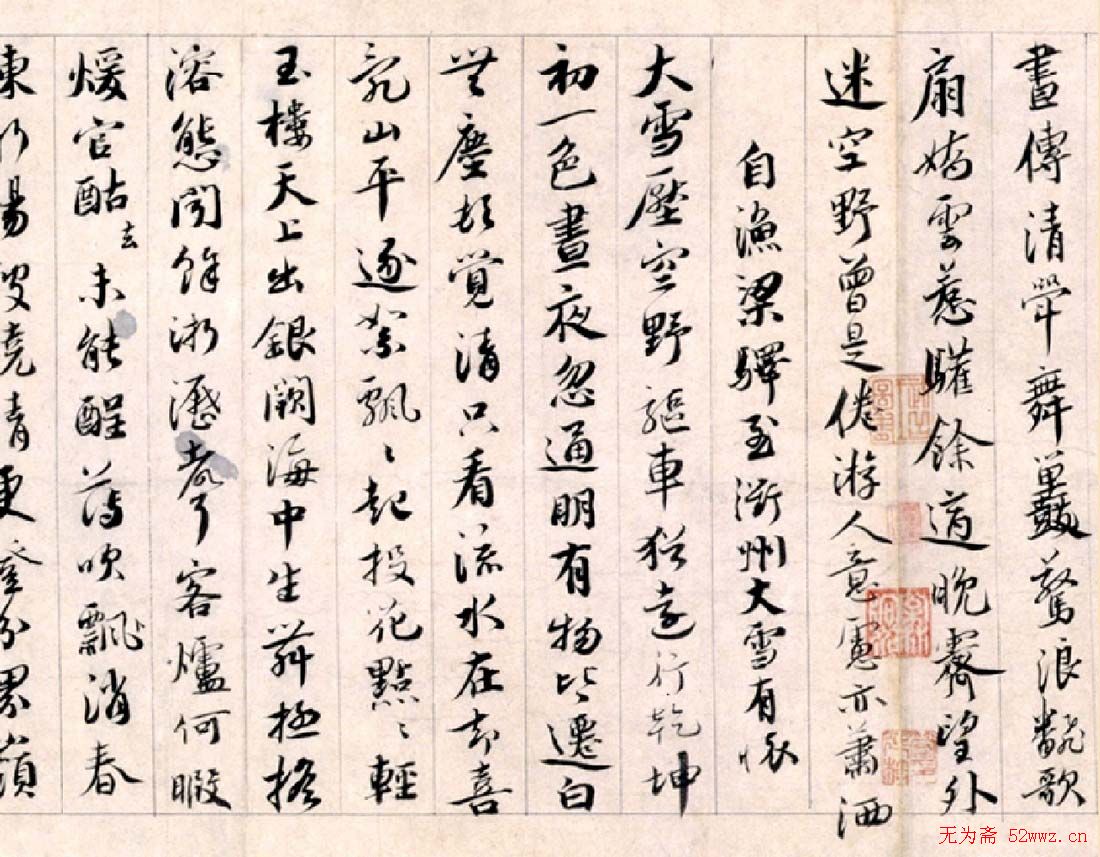 晝傳清斝舞鼉驚浪翻歌
扇嬌雲惹驩餘適晚霽望外
迷空野曾是倦游人意慮亦蕭洒
自漁梁驛至衢州大雪有懷
大雪壓空野驅車猶遠行乾坤
初一色晝夜忽通明有物皆遷白
無塵頓覺清只看流水在却喜
亂山平逐絮飄飄起投花點點輕
玉樓天上出銀闕海中生舞極搖
溶態聞餘淅瀝聲客爐何暇
煖官酤去未能醒薄吹飄消春
凍新暘破曉青更登分界嶺
无为斋 52wwz.cn